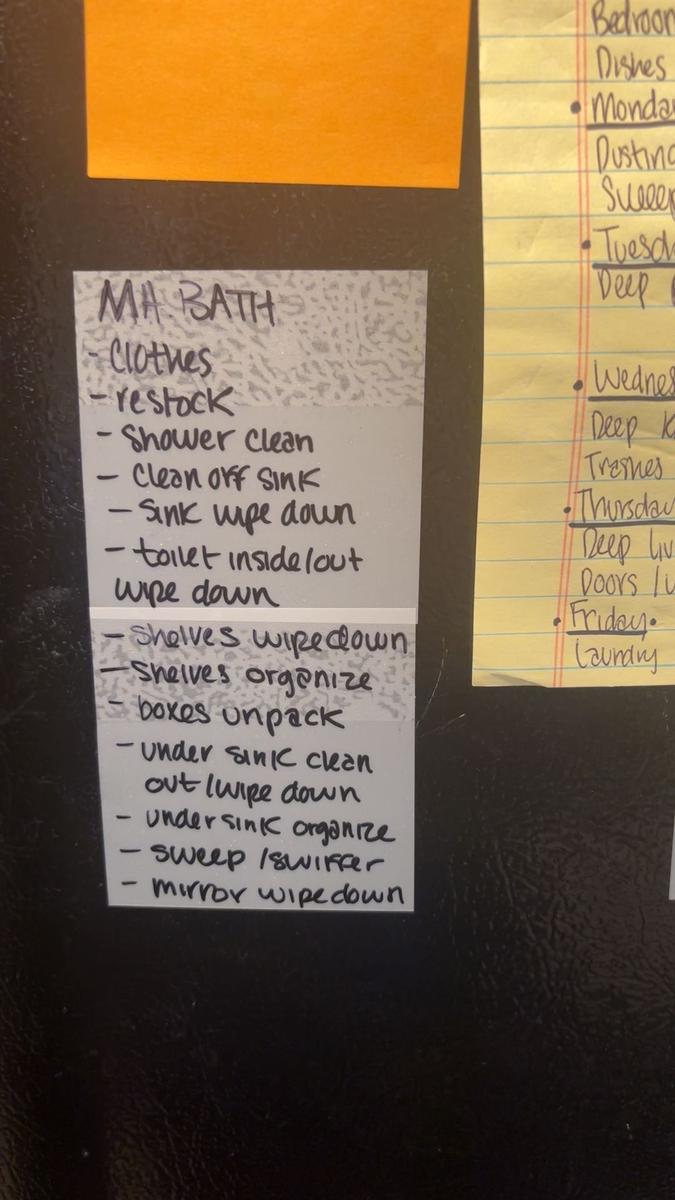 MA. BATH
- Clothes
- restock
- Shower clean
- Clean off sink
- Sink wipe down
- toilet inside/out
wipe down
- Shelves wipe down
- Shelves organize
- boxes unpack
- under sink clean
out/wipe down
- under sink organize
- sweep/swiffer
- mirror wipe down
Dishes
Deep
Deep
Trashes
Deep
Doors
• Friday•
Laundry